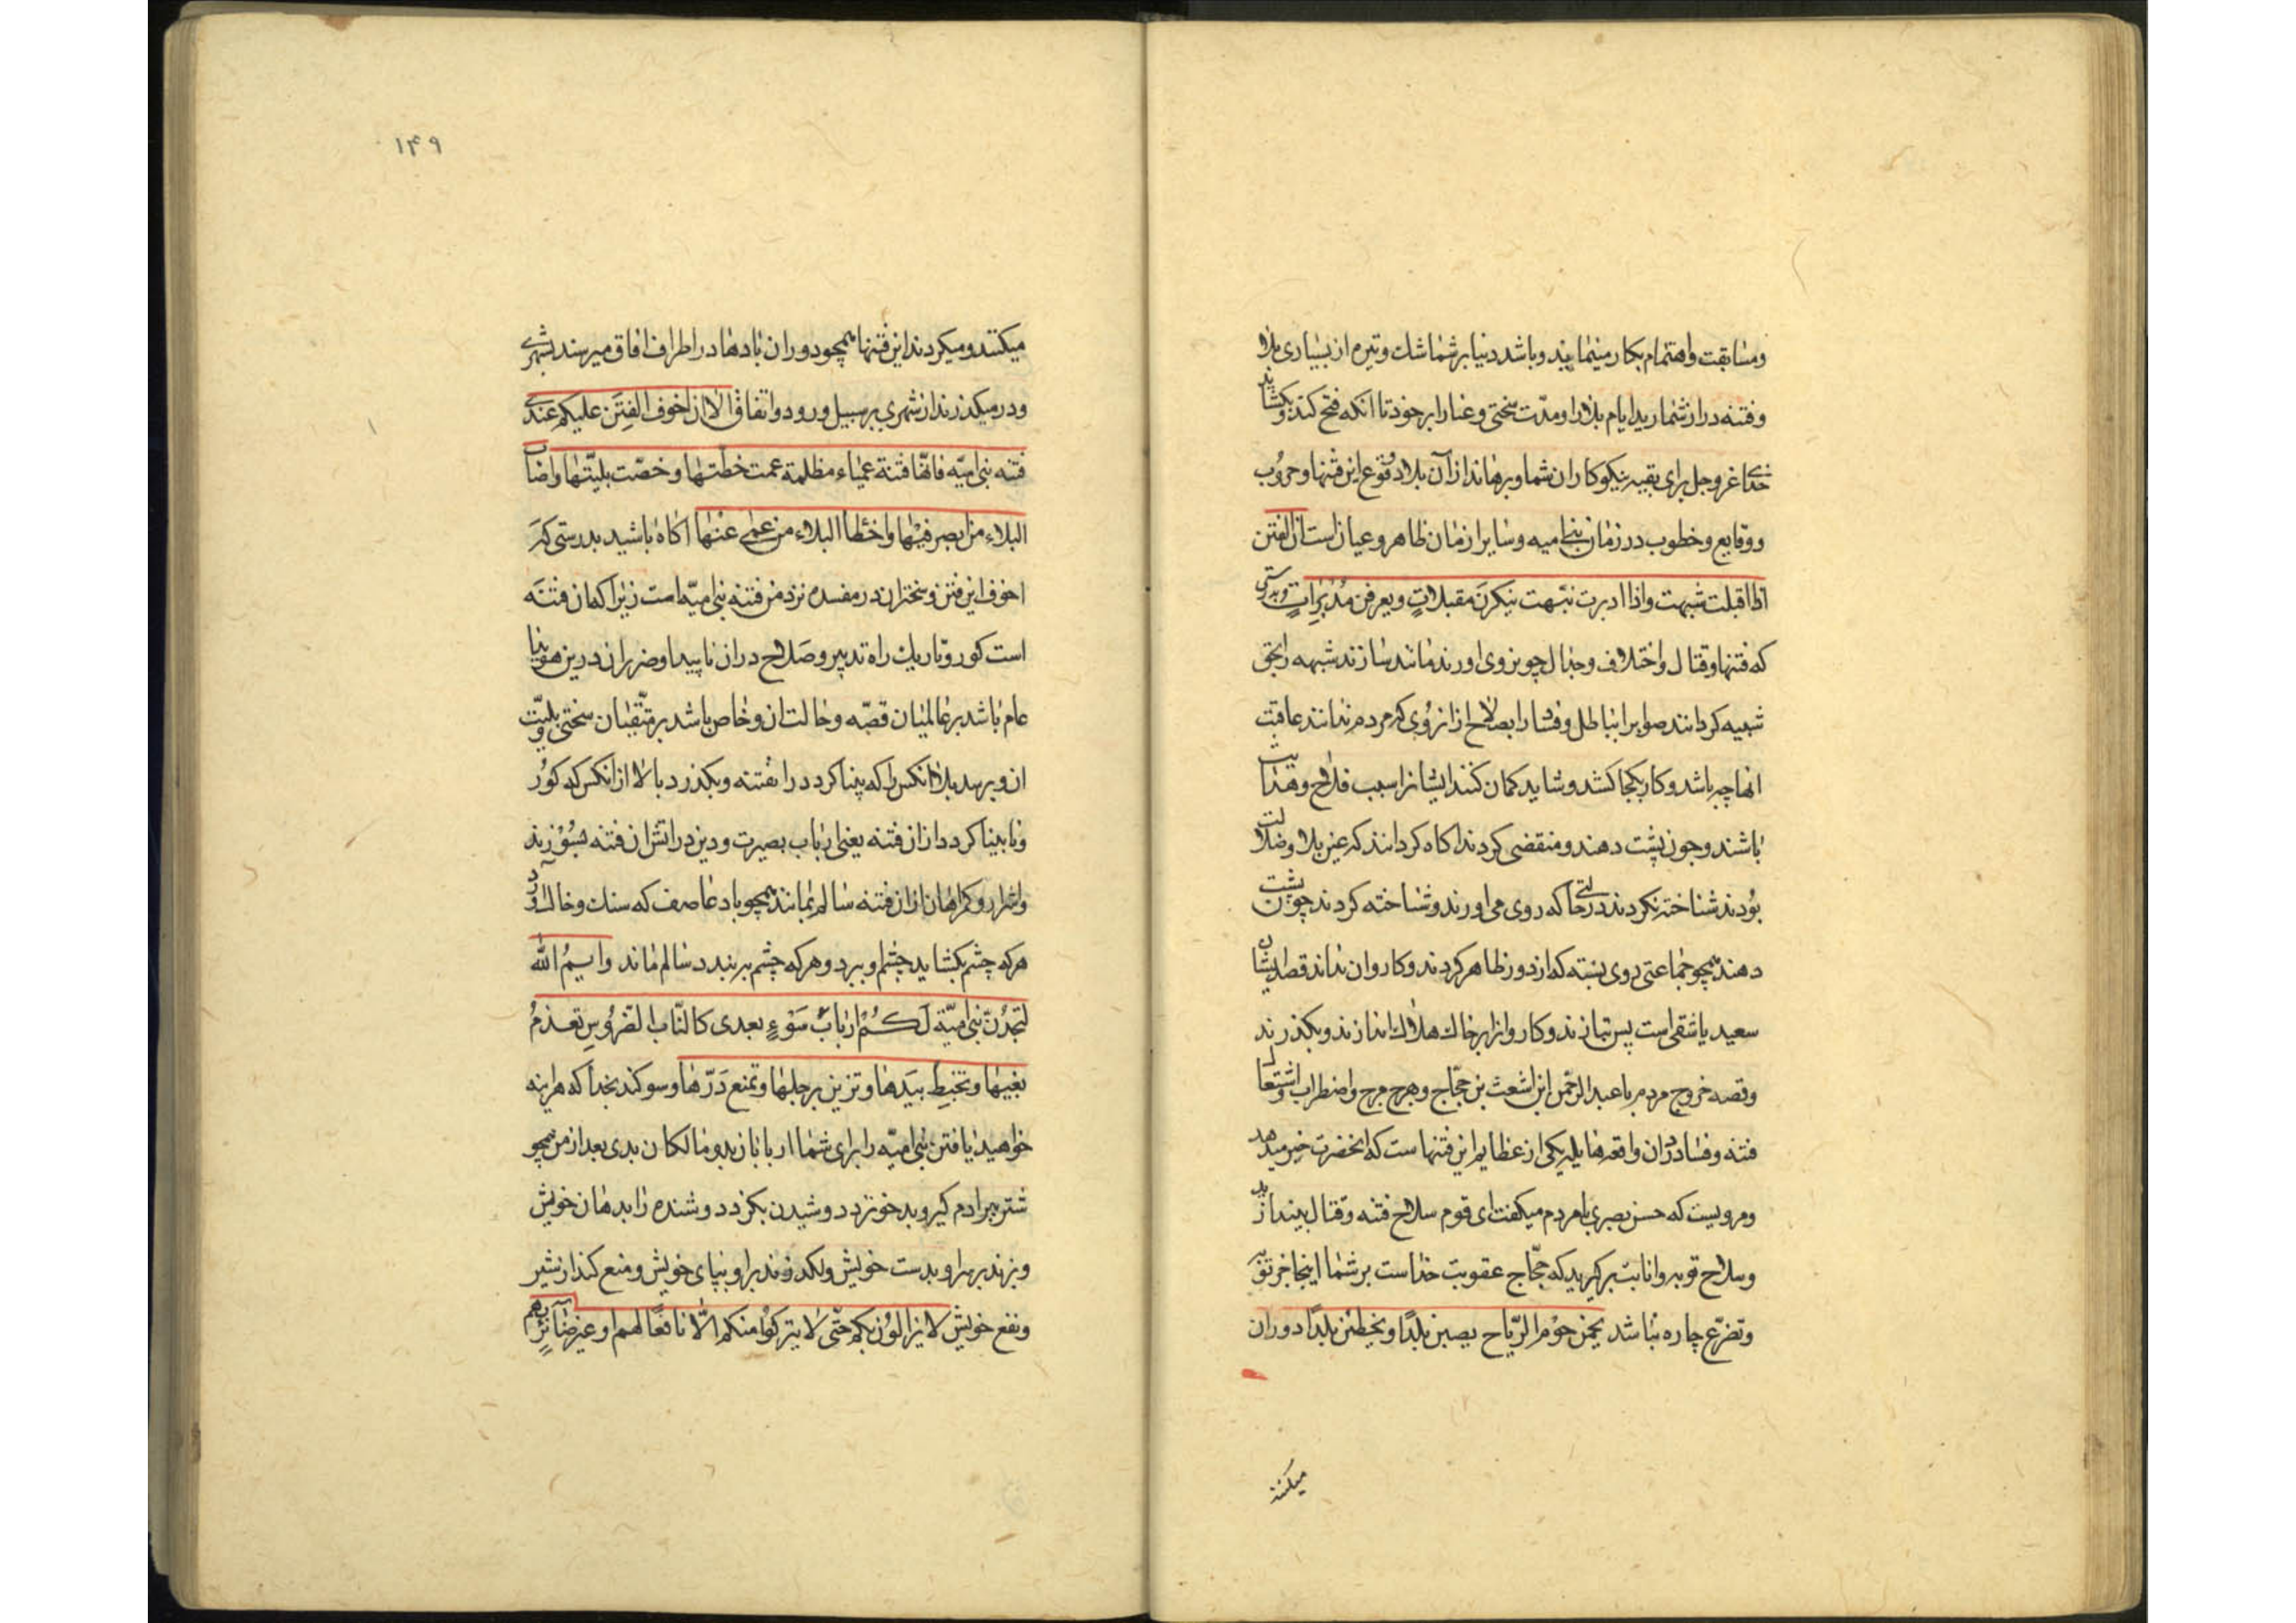 ومسابقت واهتمام بكار مينمايند وباشد دنيا برشما شك وتيره از بسيارى بلا
وفتنه دراز شماريد ايام بلا را ومدّت سختى وعنا را بر خود تا انكه فتح كند وبكشايد
خداى عزوجل براى بقيه نيكوكاران شما وبرهاند از آن بلا ووقوع اين فتنها وحروب
ووقايع وخطوب در زمان بنى اميه وساير ازمان ظاهر وعيان است ان الفتن
اذا اقبلت شبهت واذا ادبرت نبّهت ينكرن مقبلاتٍ ويعرفن مُدْبِراتٍ وبدرستى
كه فتنها وقتال واختلاف وجدال چون روى اورند مانند سازند شبهه را بحق
شبيه كردانند صواب را بباطل وفساد را بصلاح از ان روى كه مردم ندانند عاقبت
انها چه باشد وكار بكجا كشد وشايد كمان كنند ايشانرا سبب فلاح وهدايت
باشند وچون پشت دهند ومنقضى كردند اكاه كردانند كه عين بلا وضلالت
بودند شناخته نكردند در حالتى كه روى مى اورند وشناخته كردند چون پشت
دهند همچو جماعتى روى بسته كه از دور ظاهر كردند وكاروان نداند قصد ايشان
سعيد يا شقى است پس بتازند وكاروانرا بر خاك هلاك اندازند وبكذرند
وقصه خروج مردم با عبد الرحمن ابن اشعث بن حجّاج وهرج مرج واضطراب واشتعال
فتنه وفساد در ان واقعه هايله يكى از عظايم اين فتنها ست كه انحضرت خبر ميدهد
ومرويست كه حسن بصرى با مردم ميكفت اى قوم سلاح فتنه وقتال بيندازيد
وسلاح توبه وانابت بركيريد كه حجّاج عقوبت خداست برشما اينجا جز توبه
وتضرّع چاره نباشد يحمن حوم الرّياح يصبن بلدًا ويخطئن بلدًا دوران
ميكنند
١۴٩
ميكنند وميكردند اين فتنها همچو دوران بادها در اطراف افاق ميرسند بشهرى
ودر ميكذرند از شهرى بر سبيل ورود واتفاق الا ان اخوف الفِتَن عليكم عندى
فتنه بنى اميّه فانّها فتنة عمياء مظلمة عمت خطّتها وخصّت بليّتها واصاب
البلاء من ابصر فيها واخطأ البلاء من عمى عنها اكاه باشيد بدرستى كه
اخوف اين فتن وسختر ان در مفسده نزد من فتنه بنى اميّه است زيرا كه ان فتنه
است كور وتاريك راه تدبير وصلاح در ان ناپيدا وضرر ان در دين هويدا
عام باشد بر عالميان قصّه وحالت ان وخاص باشد بر متّقيان سختى وبليّت
ان وبرسد بلا انكس را كه بينا كردد در ان فتنه وبكذرد بالا از انكس كه كور
ونابينا كردد از ان فتنه يعنى ارباب بصيرت ودين در اتش ان فتنه بسوزند
واشرار وكمراهان از ان فتنه سالم بمانند همچو باد عاصف كه سنك وخاك آورد
هر كه چشم بكشايد چشم او ببرد وهر كه چشم بربندد سالم ماند وايمُ اللّه
لتجدُنّ بنى اميّة لكُم اربابُ سَوْءٍ بعدى كالنّاب الضّروس تعذمُ
بفيها وتخبط بيدها وتزبن برجلها وتمنع دَرّها وسوكند بخدا كه هراينه
خواهيد يافتن بنى اميّه را براى شما اربابان بد ومالكان بدى بعد از من همچو
شتر پير ادم كير وبد خو نزد دوشيدن بكزد دوشنده را بدهان خويش
وبزند بر سر او بدست خويش ولكد زند بر او بپاى خويش ومنع كند از شير
ونفع خويش لا يزالون بكم حتّى لا يتركوا منكم الّا نافعًا لهم او غير ضائرٍ بهم